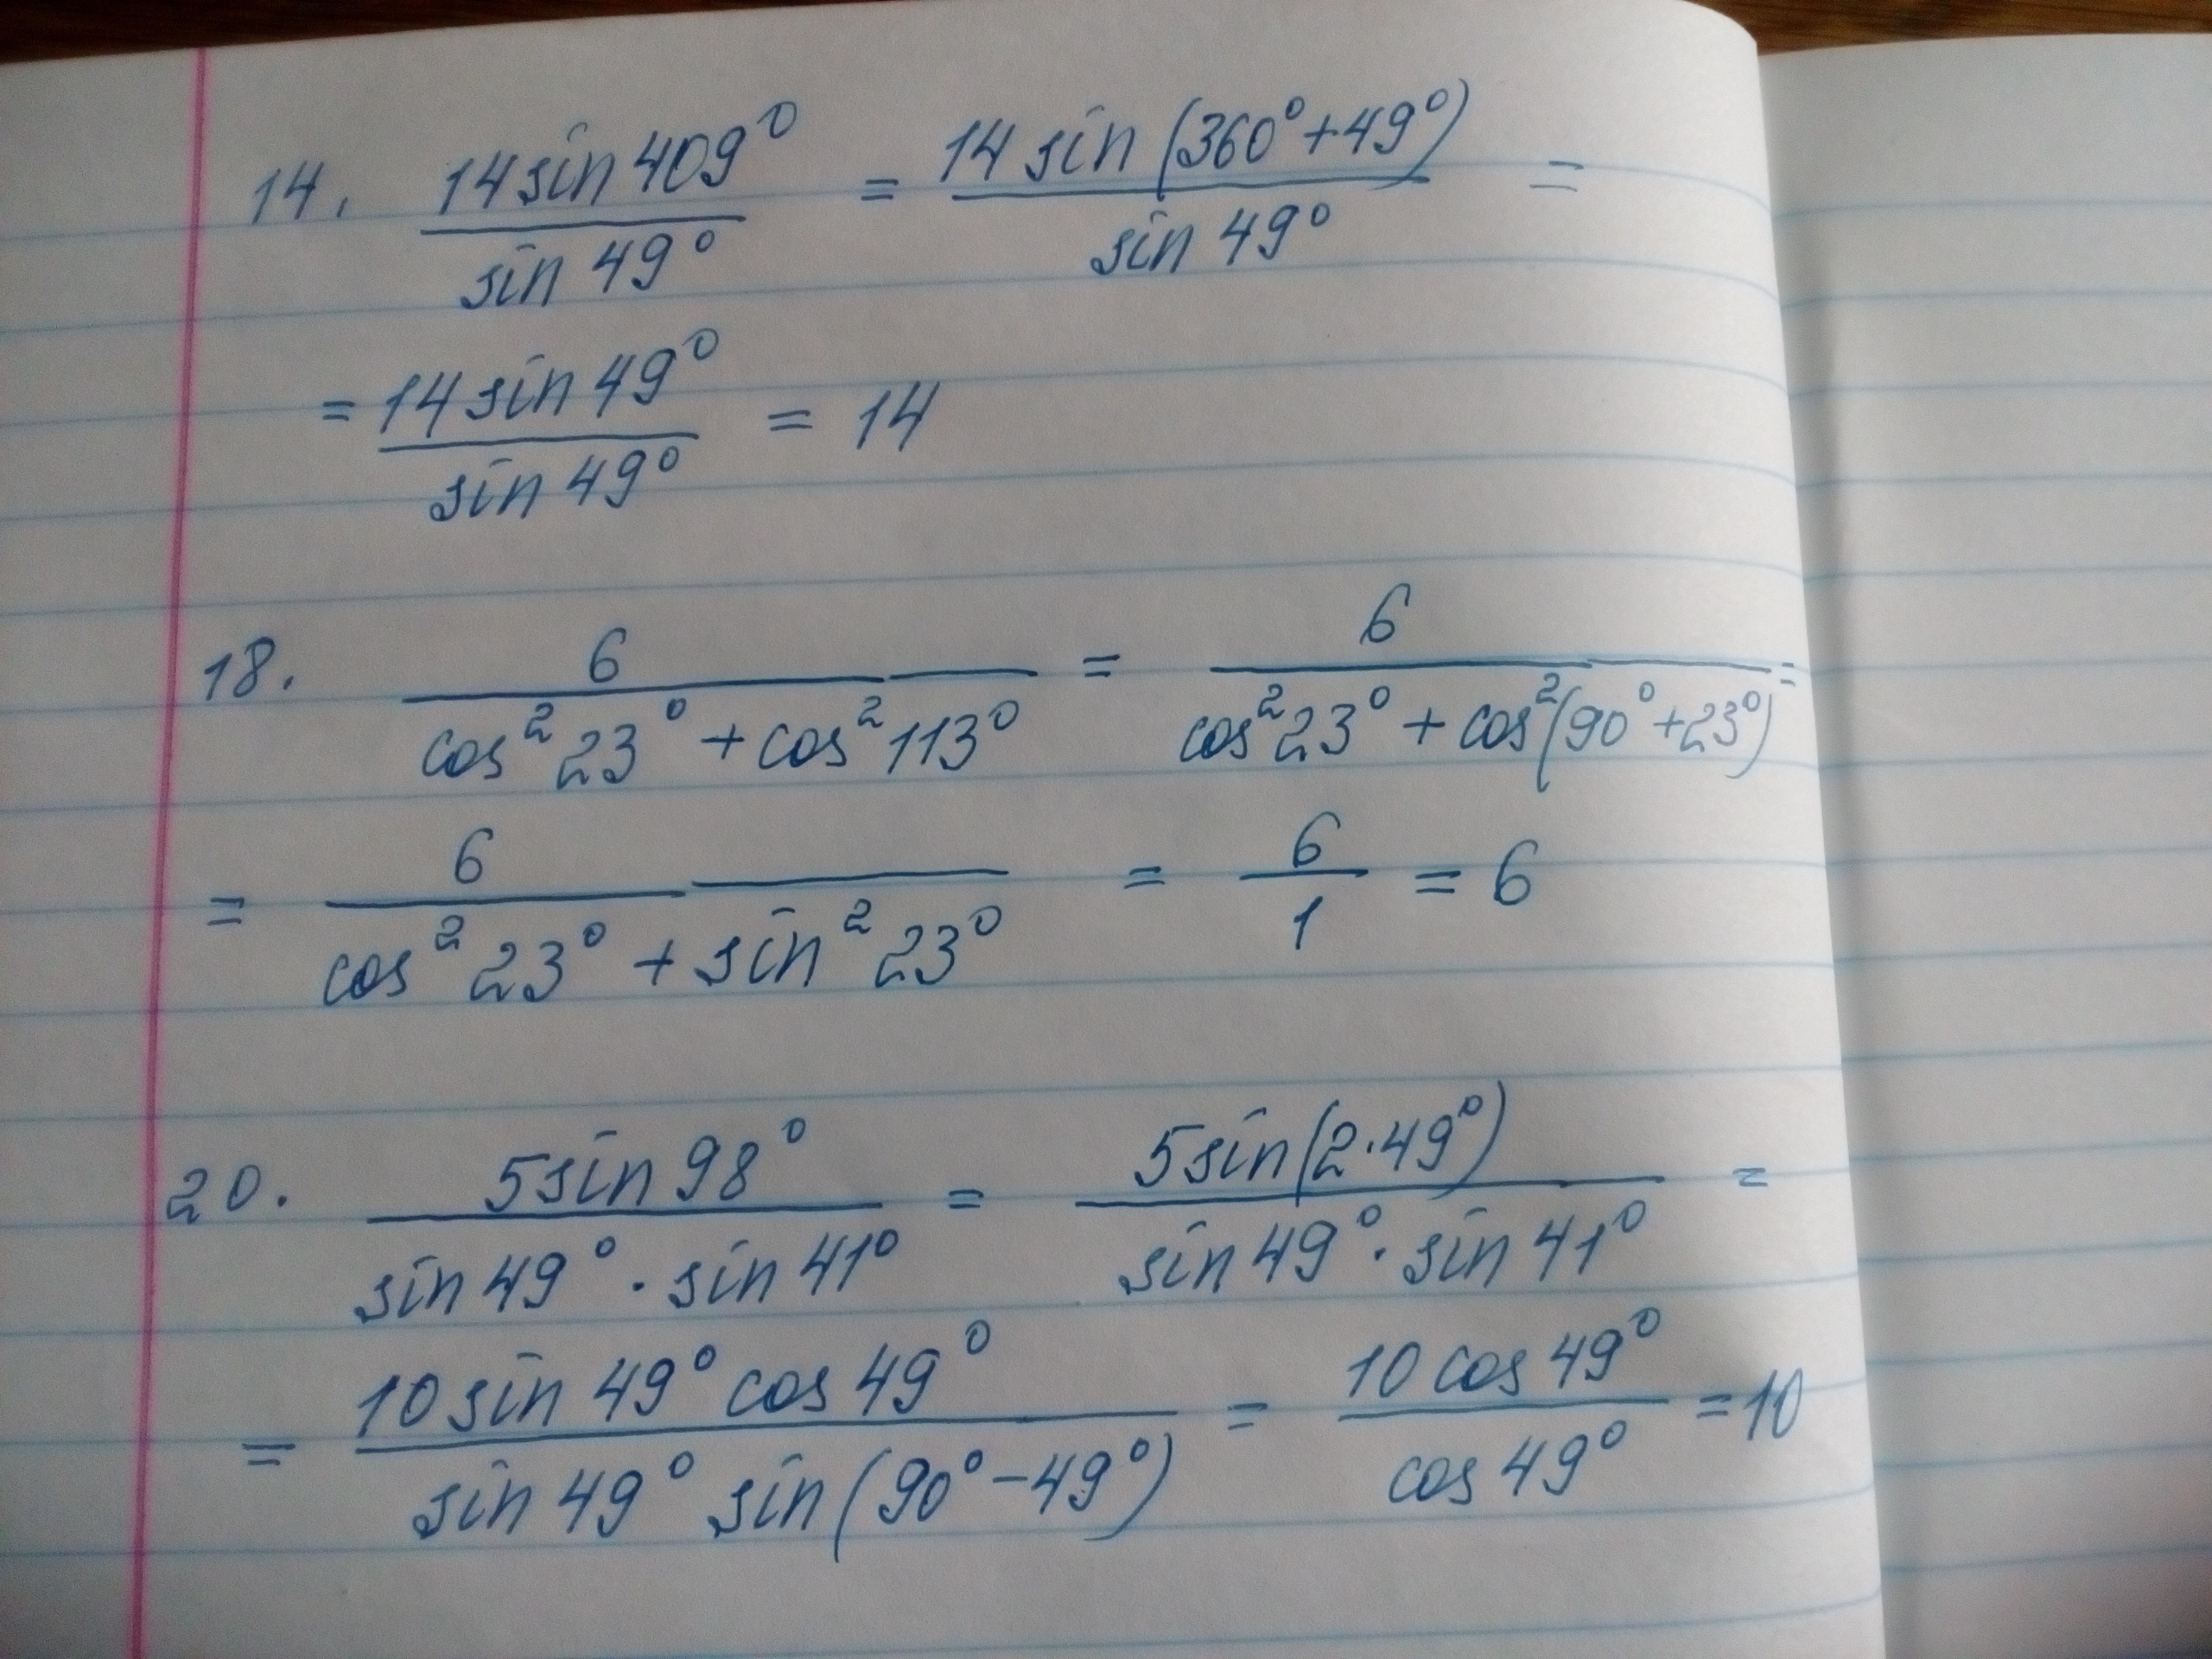 14. 14 sin 409° / sin 49° = 14 sin (360° + 49°) / sin 49° =
= 14 sin 49° / sin 49° = 14
18. 6 / cos² 23° + cos² 113° = 6 / cos² 23° + cos² (90° + 23°) =
= 6 / cos² 23° + sin² 23° = 6 / 1 = 6
20. 5 sin 98° / sin 49° · sin 41° = 5 sin (2 · 49°) / sin 49° · sin 41° =
= 10 sin 49° cos 49° / sin 49° sin (90° – 49°) = 10 cos 49° / cos 49° = 10